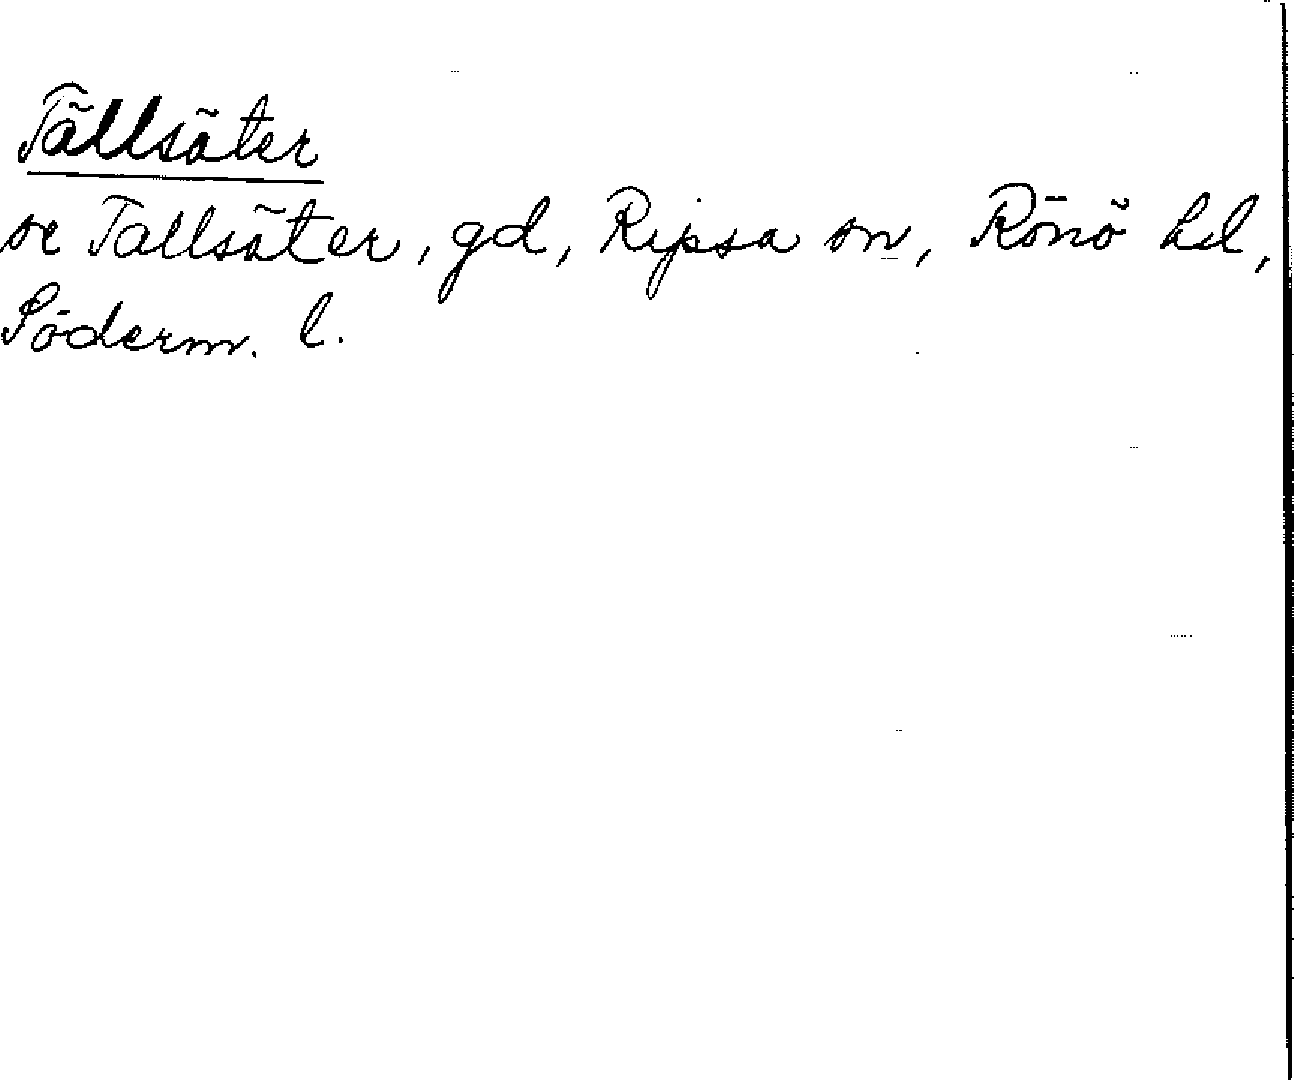 Tällsäter
se Tallsäter, gd, Ripsa sn, Rönö hd,
Söderm. l.